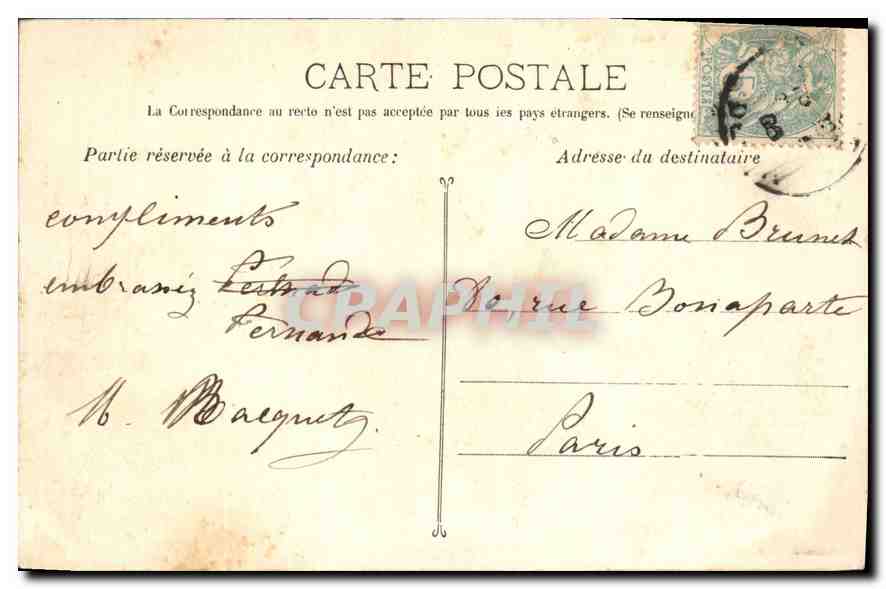 CARTE POSTALE
La Correspondance au recto n'est pas acceptée par tous les pays étrangers. (Se renseigne
Partie réservée à la correspondance:
compliments
embrassez Fernad
Fernande
M. Macquet
Adresse du destinataire
Madame Brunet
rue Bonaparte
Paris
POSTES
CPAPHIL